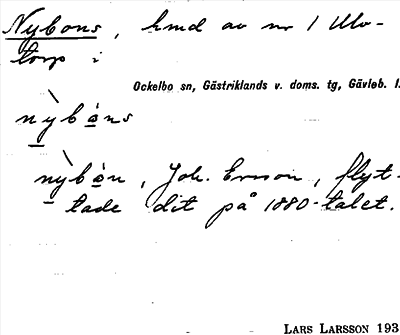 Nybons, hmd av nr 1 Ulv-
torp i
Ockelbo sn, Gästriklands v. doms. tg, Gävleb. l.
nỳbo̲ns
nỳbo̲n, Joh. Ersson, flyt-
tade dit på 1880-talet.
LARS LARSSON 193